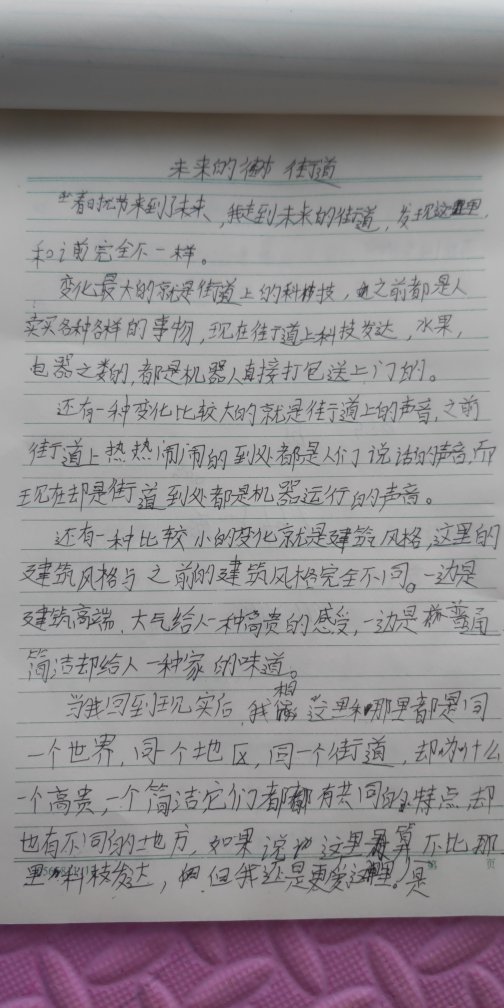 未来的街道
坐着时光机来到了未来，我走到未来的街道，发现这里
和之前完全不一样。
变化最大的就是街道上的科技，之前都是人
卖买各种各样的事物，现在街道上科技发达，水果，
电器之类的，都是机器人直接打包送上门的。
还有一种变化比较大的就是街道上的声音，之前
街道上热热闹闹的到处都是人们说话的声音，而
现在却是街道到处都是机器运行的声音。
还有一种比较小的变化就是建筑风格，这里的
建筑风格与之前的建筑风格完全不同。一边是
建筑高端，大气给人一种高贵的感受，一边是
简洁却给人一种家的味道。
当我回到现实后，我想这里和那里都是同
一个世界，同一个地区，同一个街道，却为什么
一个高贵，一个简洁它们者都有共同的特点，却
也有不同的地方，如果说这里算不比那
里科技发达，但我还是更爱这里。是